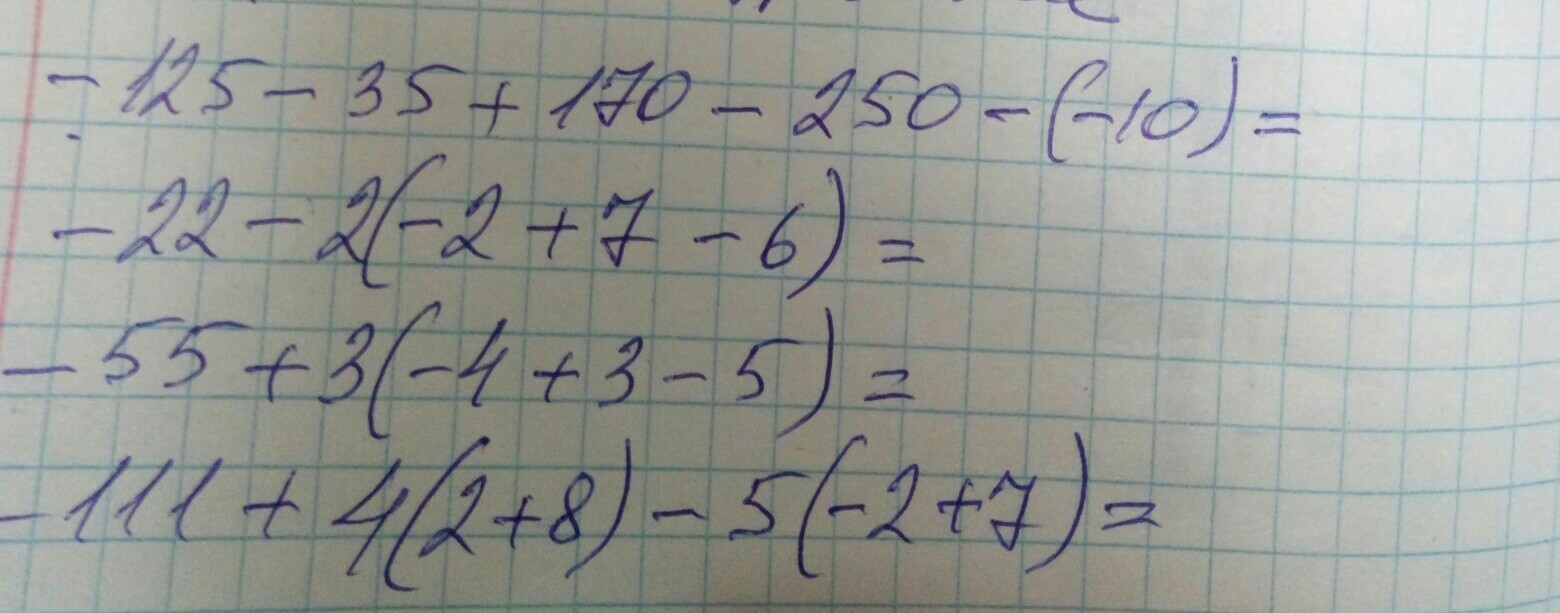 -125-35+170-250-(-10)=
-22-2(-2+7-6)=
-55+3(-4+3-5)=
-111+4(2+8)-5(-2+7)=